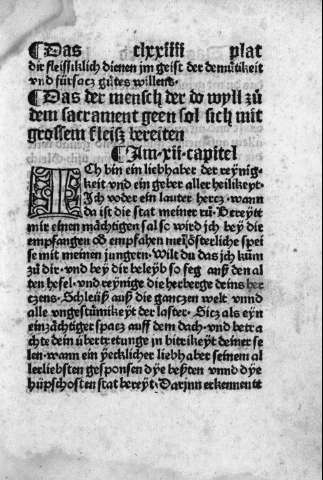 ¶Das clxxiiii plat
dir fleissiklich dienen jm geist der demütikeit
vnd fürsacz gůtes willens.
¶Das der mensch der do wyll zů
dem sacrament geen sol sich mit
grossem fleisz bereiten
¶Am·xii·capitel
ICh bin ein liebhaber der reynig
keit vnd ein geber aller heilikeyt·
Ich voder ein lauter hercz·wann
da ist die stat meiner rů·Bereytt
mir einen mächtigen sal so wird ich bey dir
empfangen oð empfahen meī österliche spei
se mit meinen jungern· Wilt du das ich kūm
zů dir·vnd bey dir beleyb so feg auß den al
ten hefel·vnd reynige die herberge deins her
czens·Schleüß auß die ganczen welt vnnd
alle vngestümikeyt der laster·Sicz als eyn
einzächtiger spacz auff dem dach·vnd betra
chte dein übertretunge in bitrikeyt deiner se
len·wann ein yecklicher liebhaber seinem al
lerliebsten gesponsen dye beyten vnnd dye
hüpschosten stat bereyt·Darjnn erkennent